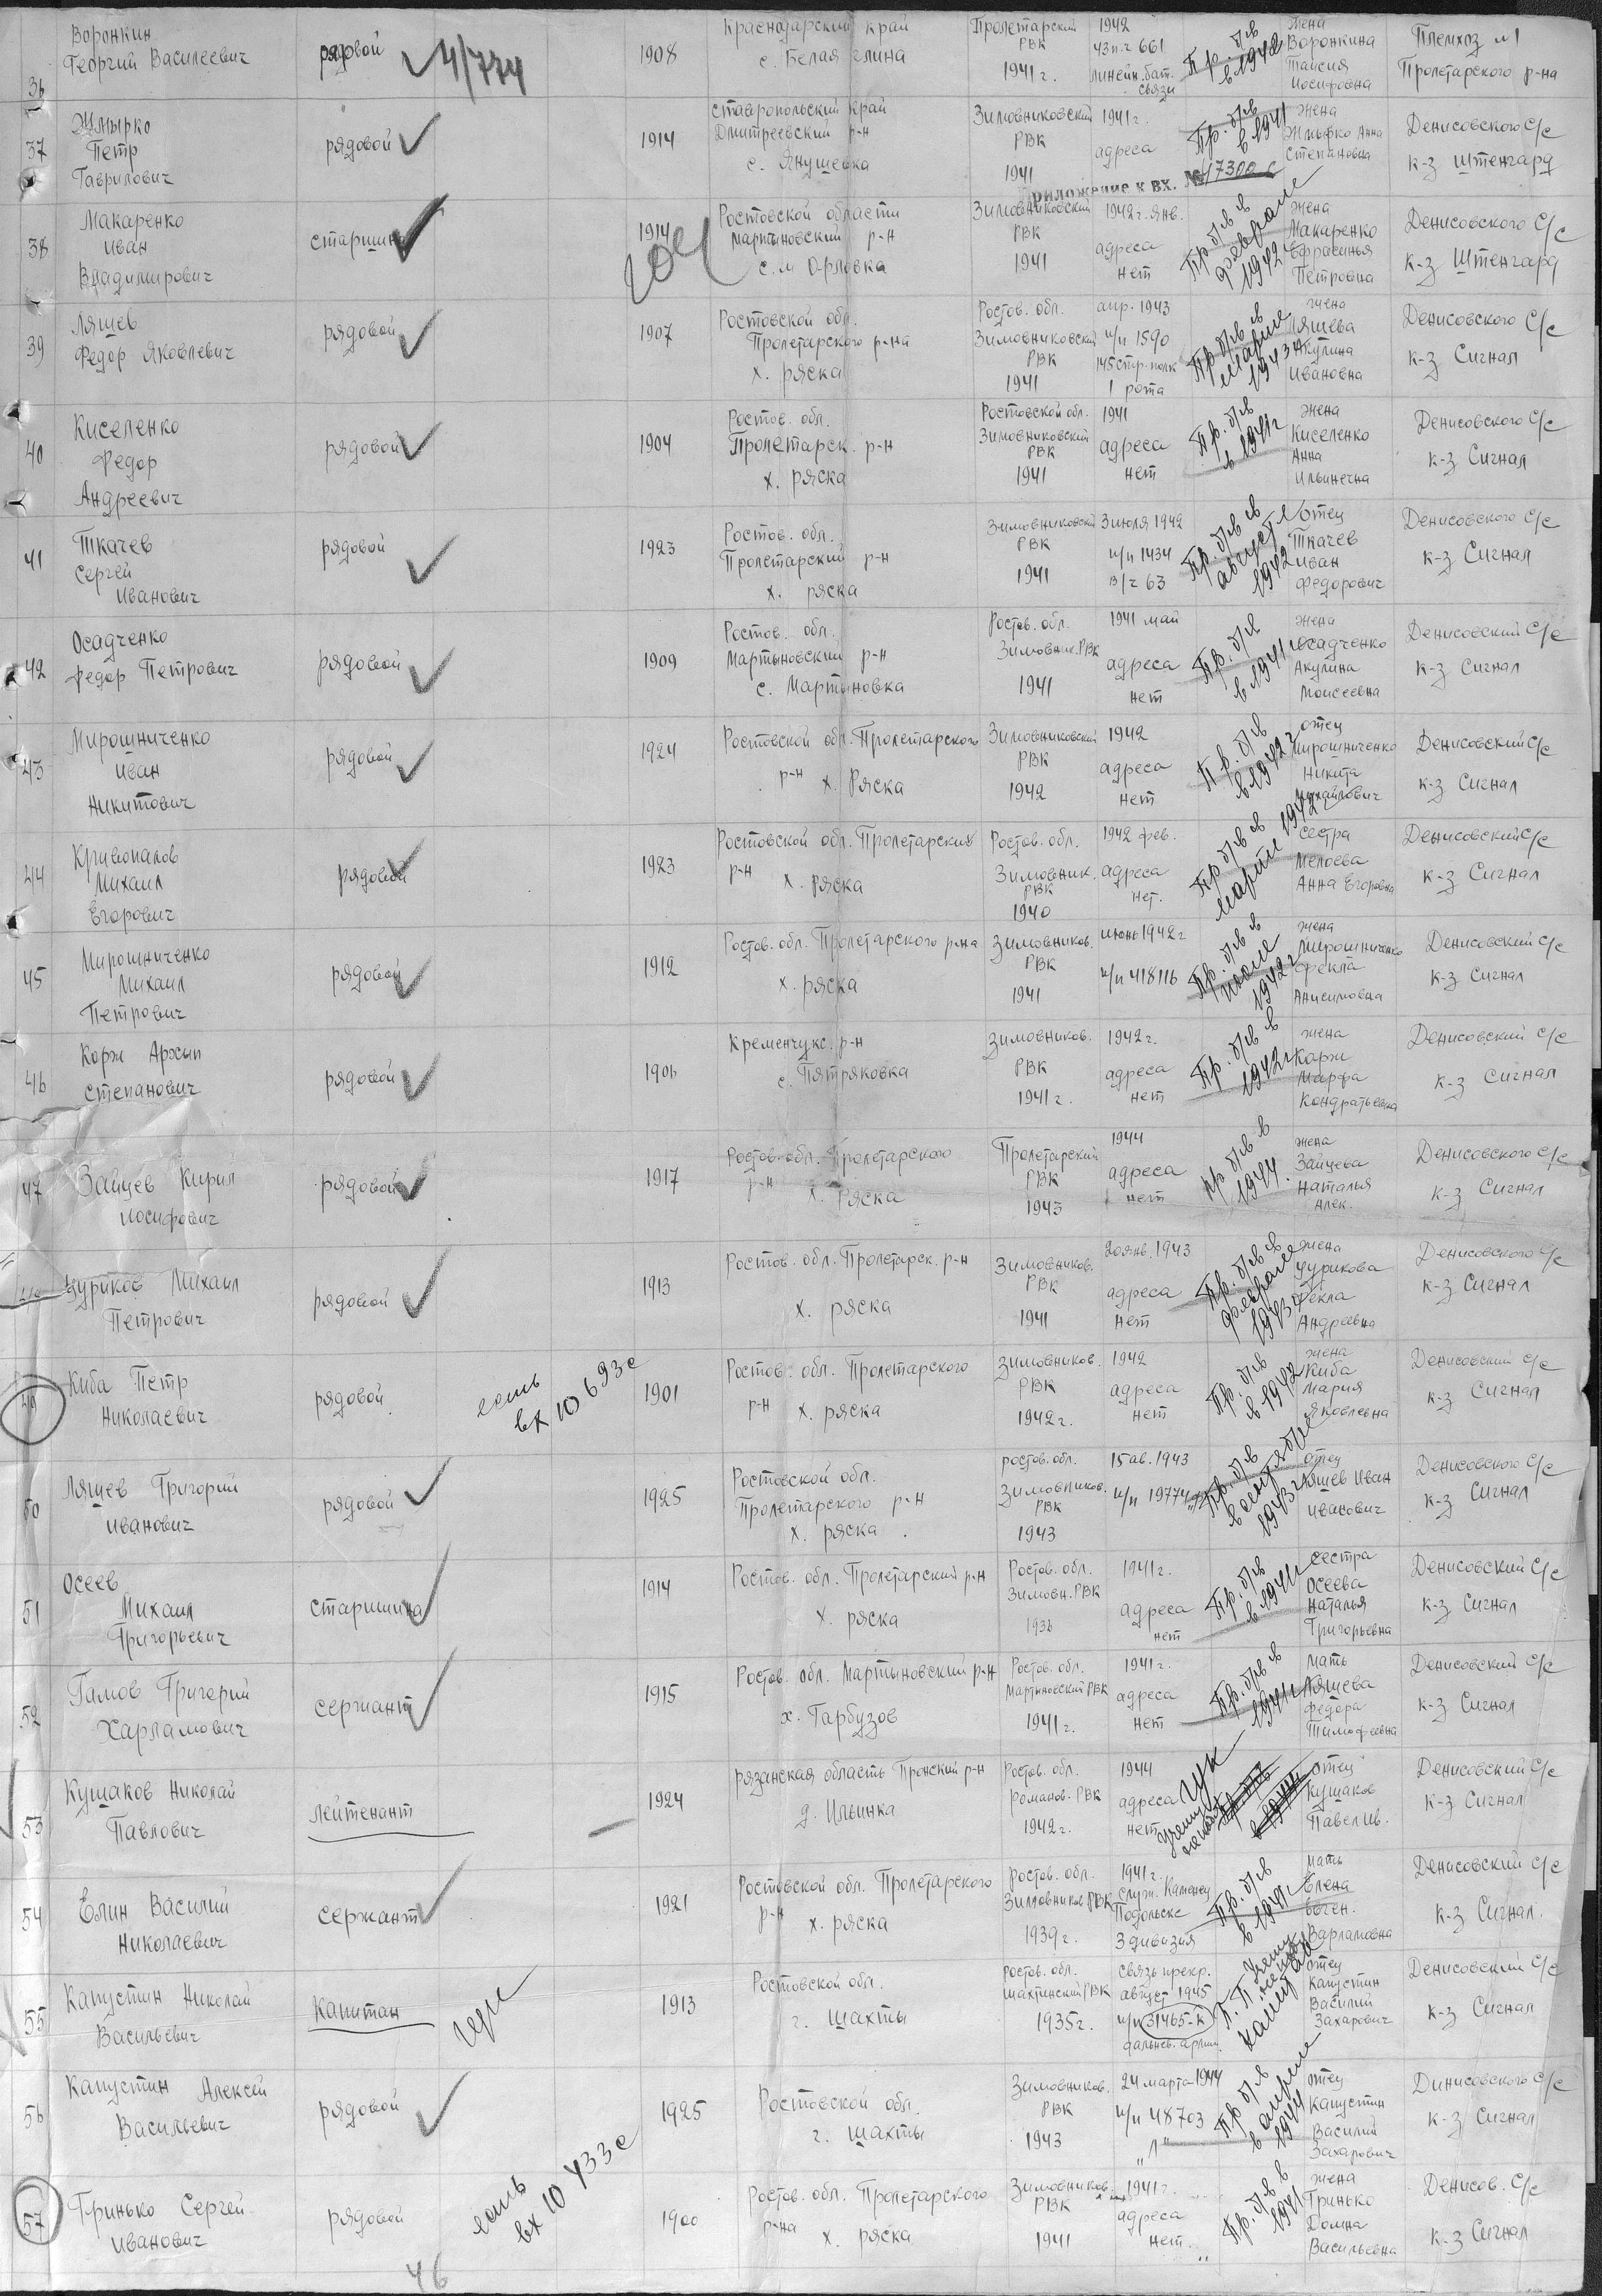 36 Воронкин Георгий Василеевич рядвой 4/774 1908 Краснодарский край с. Белая глина Пролетарский РВК 1941 г. 1942 43 п.ч 661 линейн. бат. связи Пр. б/в в 1942 жена Воронкина Таисия Иосифовна Племхоз №1 Пролетарского р-на
37 Жмырко Петр Гаврилович рядовой 1914 Ставропольский край Дмитреевский р-н с. Янушевка Зимовниковский РВК 1941 1941 г. адреса Пр. б/в в 1941 жена Жмырко Анна Степановна Денисовского С/с к-з Штенгард
риложение к вх. № 17300 с
38 Макаренко Иван Владимирович старшина 1914 Ростовской области Мартыновский р-н с. м Орловка Зимовниковский РВК 1941 1942 г. янв. адреса нет Пр б/в в феврале 1942 жена Макаренко Ефрасинья Петровна Денисовского С/с к-з Штенгард
104
39 Ляшев Федор Яковлевич рядовой 1907 Ростовской обл. Пролетарского р-на х. ряска Ростов. обл. Зимовниковский РВК 1941 апр. 1943 п/п 1590 145 стр. полк 1 рота Пр б/в в марте 1943 жена Ляшева Акулина Ивановна Денисовского С/с к-з Сигнал
40 Киселенко Федор Андреевич рядовой 1904 Ростов. обл. Пролетарск. р-н х. ряска Ростовской обл. Зимовниковский РВК 1941 1941 адреса нет Пр. б/в в 1941 г жена Киселенко Анна Ильинечна Денисовского С/с к-з Сигнал
41 Ткачев Сергей Иванович рядовой 1923 Ростов. обл. Пролетарский р-н х. ряска Зимовниковский РВК 1941 3 июля 1942 п/п 1434 в/ч 63 Пр. б/в в августе 1942 отец Ткачев Иван Федорович Денисовского С/с к-з Сигнал
42 Осадченко Федор Петрович рядовой 1909 Ростов. обл. Мартыновский р-н с. Мартыновка Ростов. обл. Зимовник. РВК 1941 1941 май адреса нет Пр. б/в в 1941 жена Осадченко Акулина Моисеевна Денисовский С/с к-з Сигнал
43 Мирошниченко Иван Никитович рядовой 1924 Ростовской обл. Пролетарского р-н х. Ряска Зимовниковский РВК 1942 1942 адреса нет Пр. б/в в 1942 г отец Мирошниченко Никита Михайлович Денисовский С/с к-з Сигнал
44 Кривопалов Михаил Егорович рядовой 1923 Ростовской обл. Пролетарских р-н х. ряска Ростов. обл. Зимовник. РВК 1940 1942 фев. адреса нет. Пр б/в в марте 1942 сестра Мелоева Анна Егоровна Денисовский С/с к-з Сигнал
45 Мирошниченко Михаил Петрович рядовой 1912 Ростов. обл. Пролетарского р-на х. ряска Зимовников. РВК 1941 июнь 1942 г п/п 418116 Пр. б/в в июле 1942 г жена Мирошниченко Фекла Анисимовна Денисовский С/с к-з Сигнал
46 Корж Архып Степанович рядовой 1906 Кременчукс. р-н с. Пятряковка Зимовников. РВК 1941 г. 1942 г. адреса нет Пр. б/в в 1942 г жена Корж Марфа Кондратьевна Денисовский С/с к-з Сигнал
47 Зайцев Кирил Иосифович рядовой 1917 Ростов. обл. Пролетарского р-н х. Ряска Пролетарский РВК 1943 1944 адреса нет пр б/в в 1944. жена Зайцева Наталья Алек. Денисовского С/с к-з Сигнал
Цуриков Михаил Петрович рядовой 1913 Ростов. обл. Пролетарск. р-н х. ряска Зимовников. РВК 1941 20 янв. 1943 адреса нет Пр. б/в в феврале 1943 жена Цурикова Фекла Андреевна Денисовского С/с к-з Сигнал
49 Киба Петр Николаевич рядовой есть вх 10693с 1901 Ростов. обл. Пролетарского р-н х. ряска Зимовников. РВК 1942 г. 1942 адреса нет Пр. б/в в 1942 жена Киба Мария Яковлевна Денисовский С/с к-з Сигнал
50 Ляшев Григорий Иванович рядовой 1925 Ростовской обл. Пролетарского р-н х. ряска. Ростов. обл. Зимовников. РВК 1943 15 ав. 1943 п/п 19774 Пр. б/в в сентябре 1943 г отец Ляшев Иван Иванович Денисовского С/с к-з Сигнал
51 Осеев Михаил Григорьевич старшина 1914 Ростов. обл. Пролетарский р-н х. ряска Ростов. обл. Зимовн. РВК 1936 1941 г. адреса нет Пр. б/в в 1941 г сестра Осеева Наталья Григорьевна Денисовский С/с к-з Сигнал
52 Гамов Григорий Харламович сержант 1915 Ростов. обл. Мартыновский р-н х. Гарбузов Ростов. обл. Мартыновский РВК 1941 г. 1941 г. адреса нет Пр. б/в в 1941 г мать Ляшева Федора Тимофеевна Денисовский С/с к-з Сигнал
53 Кушаков Николай Павлович лейтенант 1924 Рязанская область Пронский р-н д. Ильинка Ростов. обл. Романов. РВК 1942 г. 1944 адреса нет ГУК отец Кушаков Павел Ив. Денисовский С/с к-з Сигнал
54 Елин Василий Николаевич сержант 1921 Ростовской обл. Пролетарского р-н х. ряска Ростов. обл. Зимовников РВК 1939 г. 1941 г. служ. Каменец Подольске 3 дивизия Пр. б/в в 1941 г мать Елена Евген. Варламовна Денисовский С/с к-з Сигнал.
55 Капустин Николай Васильевич Капитан 1913 Ростовской обл. г. шахты Ростов. обл. шахтинский РВК 1935 г. связь прекр. август 1945 п/п 31465-к дальнев. армии отец Капустин Василий Захарович Денисовский С/с к-з Сигнал
56 Капустин Алексей Васильевич рядовой 1925 Ростовской обл. г. шахты Зимовников. РВК 1943 24 марта 1944 п/п 48703 "Л" Пр б/в в апреле 1944 отец Капустин Василий Захарович Динисовского С/с к-з Сигнал
57 Гринько Сергей Иванович рядовой есть вх 10433с 1900 Ростов. обл. Пролетарского р-на х. ряска Зимовников. РВК 1941 1941 г. адреса нет. Пр. б/в в 1941 жена Гринько Домна Васильевна Денисов. С/с к-з Сигнал
46